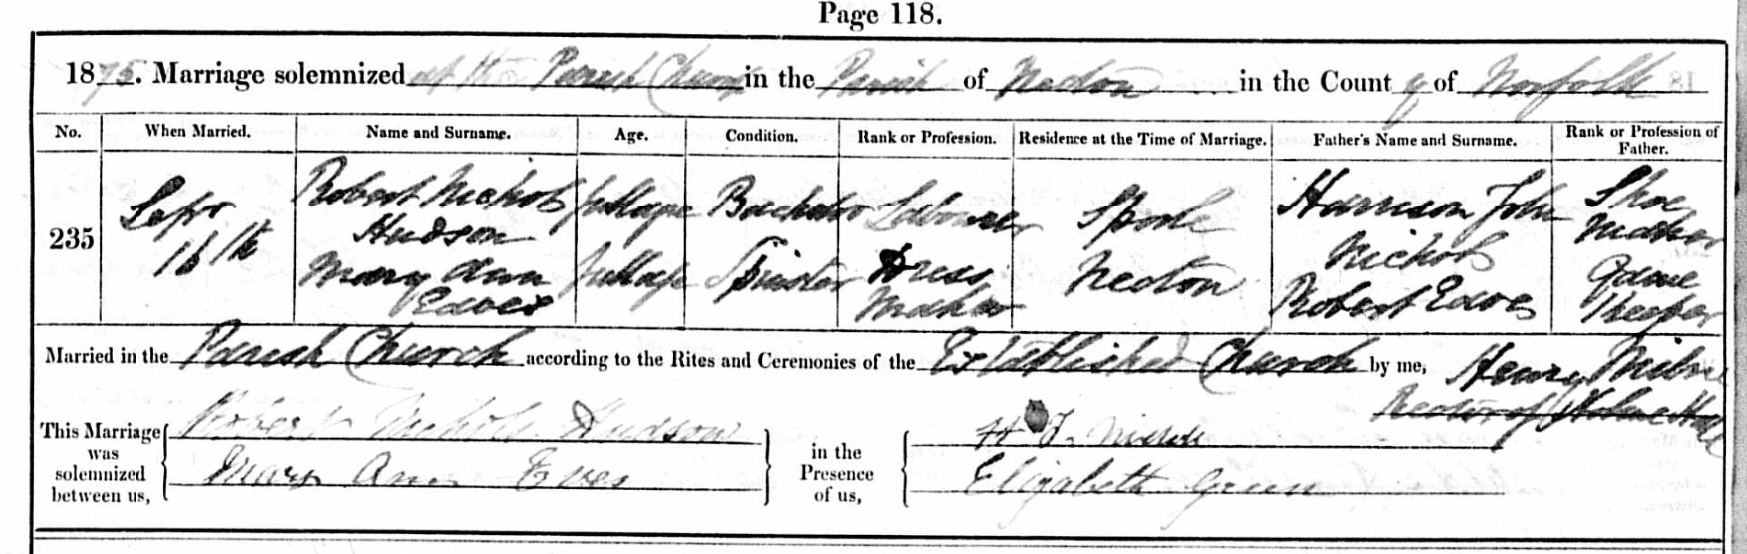 Page 118.
1875. Marriage solemnized at the Parish Church in the Parish of Necton in the County of Norfolk
No. When Married. Name and Surname. Age. Condition. Rank or Profession. Residence at the Time of Marriage. Father's Name and Surname. Rank or Profession of Father.
235 Sept 16th Robert Nichols Hudson full age Bachelor Labourer Sporle Harrison John Nichols Shoe Maker
Mary Ann Eaves full age Spinster Dress Maker Necton Robert Eaves Game Keeper
Married in the Parish Church according to the Rites and Ceremonies of the Established Church by me, Henry Milne
Rector of Holme Hale
This Marriage was solemnized between us, Robert Nichols Hudson
Mary Ann Eves
in the Presence of us, H J
Elizabeth Green